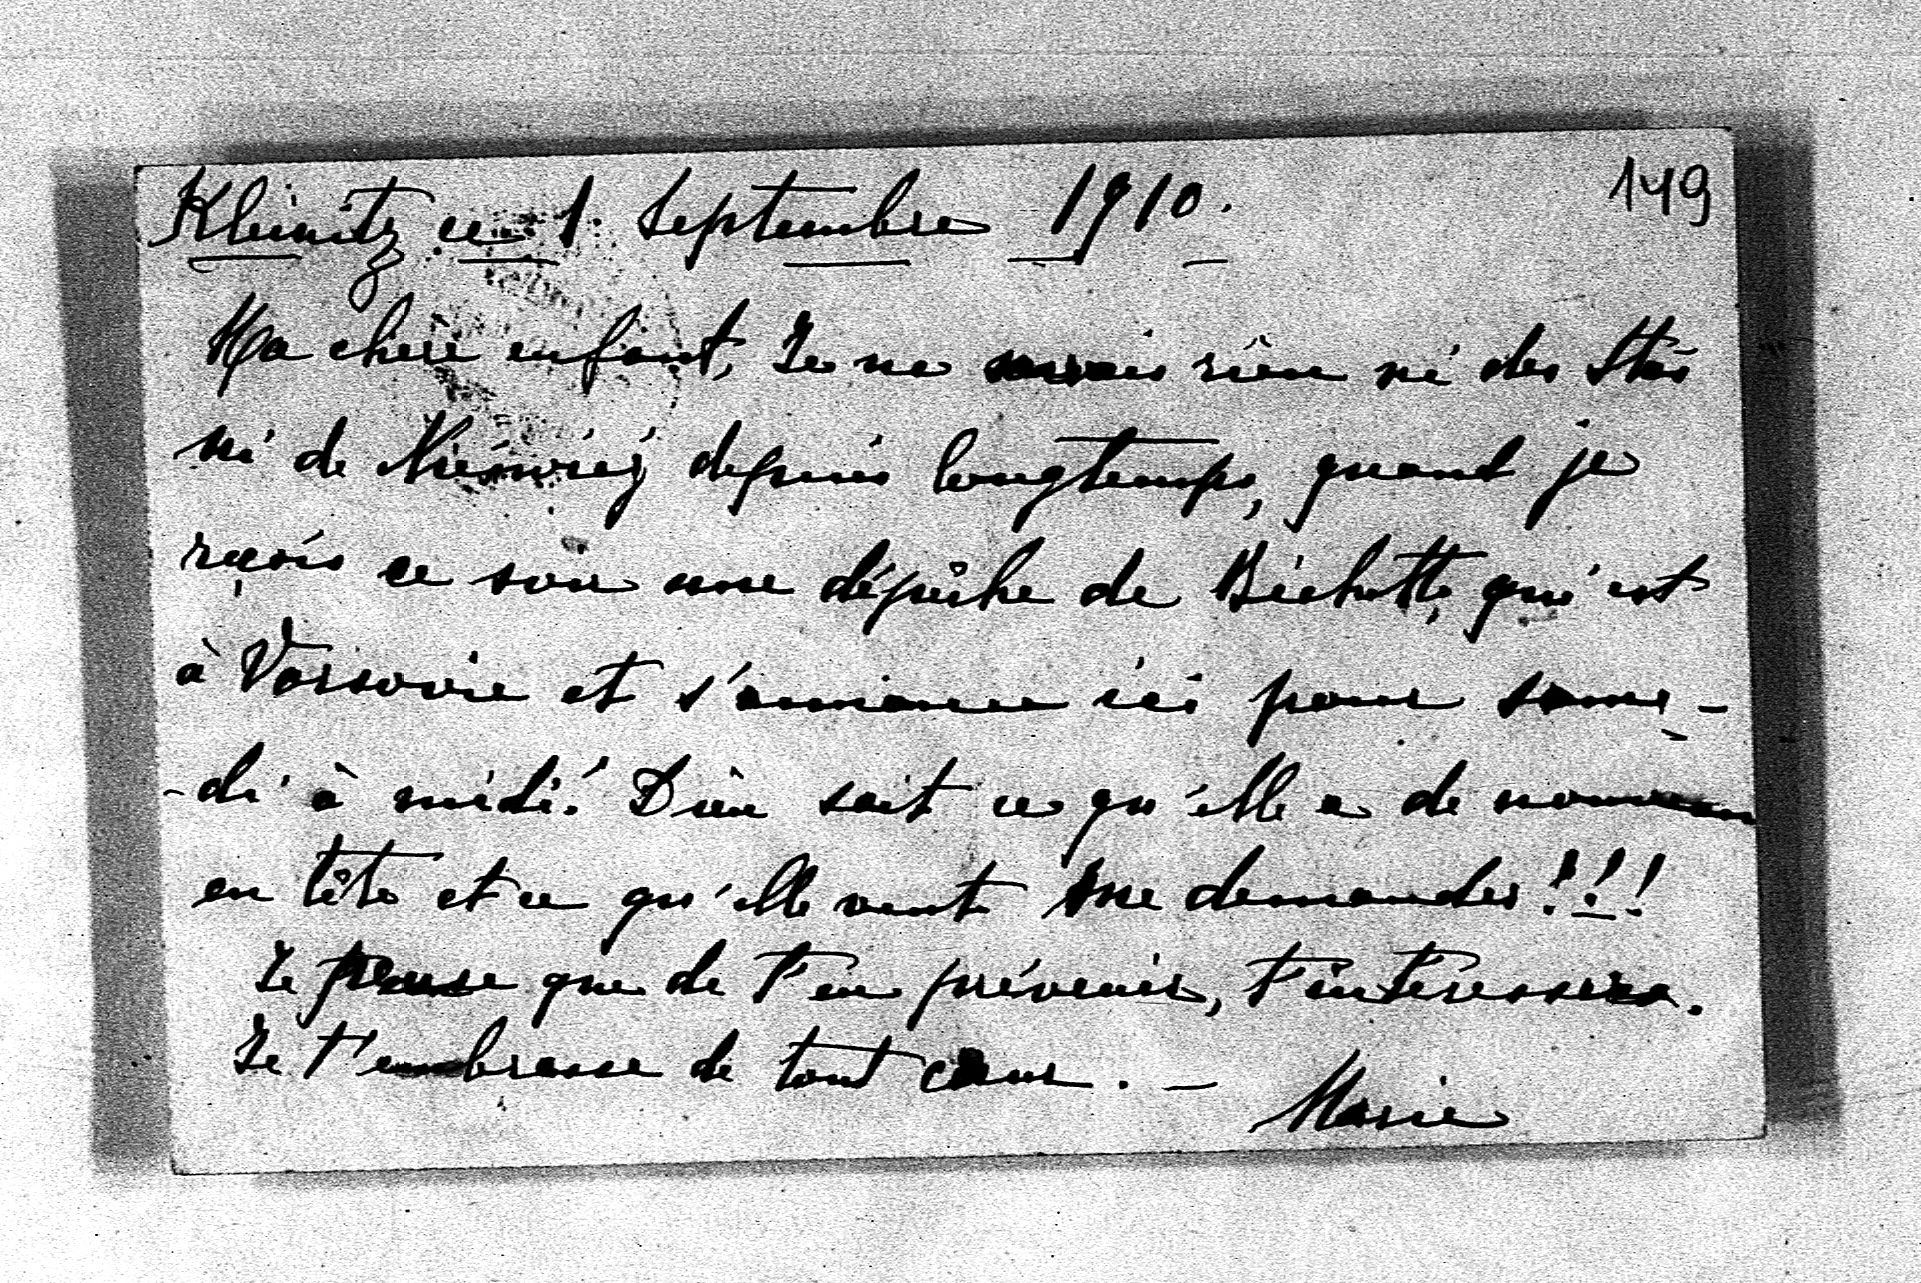 Kleinitz ce 1. Septembre 1910.
149
Ma chère enfant, Je ne savais rien ni des Stas
ni de Nieśwież depuis longtemps, quand je
reçois ce soir une dépêche de Bichette, qui est
à Varsovie et s'annonce ici pour same-
-di à midi! Dieu sait ce qu'elle a de nouveau
en tête et ce qu'elle veut me demander!!!
Je pense que de t'en prévenir, t'interessera.
Je t'embrasse de tout cœur. —
Marie